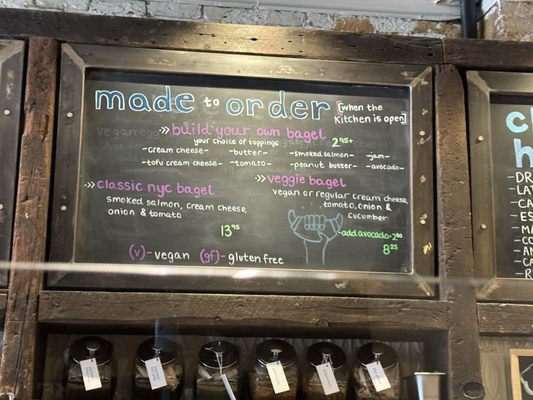 made to order [when the
kitchen is open]
>> build your own bagel 2.95+
your choice of toppings
-cream cheese- -butter- -smoked salmon- -jam-
-tofu cream cheese- -tomato- -peanut butter- -avocado-
>> classic nyc bagel
smoked salmon, cream cheese,
onion & tomato
13.95
>> veggie bagel
vegan or regular cream cheese,
tomato, onion &
cucumber
-add avocado- 2.50
8.25
(v)- vegan (gf)- gluten free